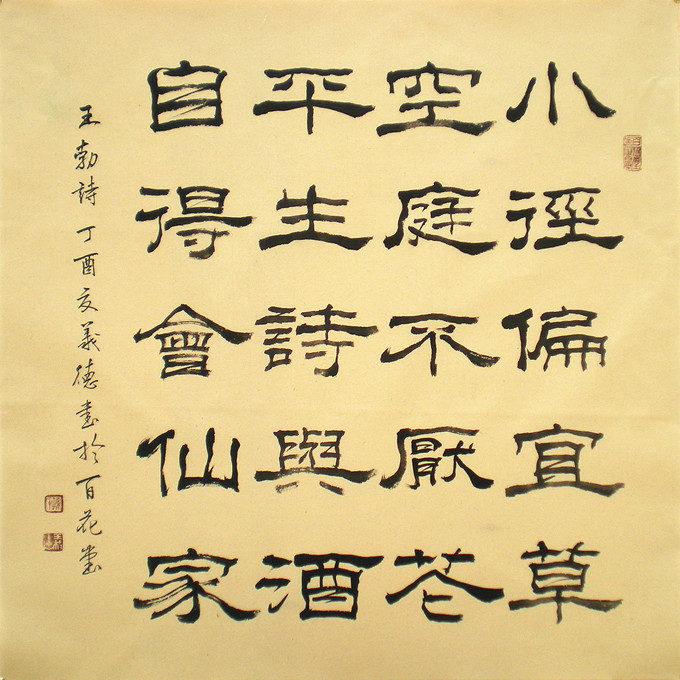 小徑偏宜草
空庭不厭花
平生詩與酒
自得會仙家
王勃詩丁酉夏義德書於百花堂